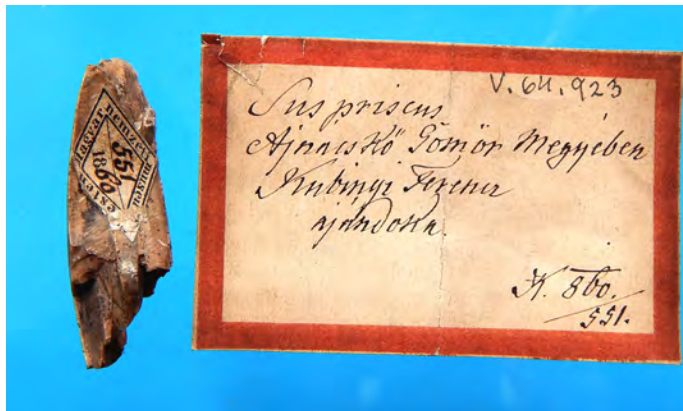 magyar nemzeti
551
1860
V.64.923
Sus priscus
Ajnácskő Gömör Megyében
Kubinyi Ferencz
ajándoka.
K. 860.
551.